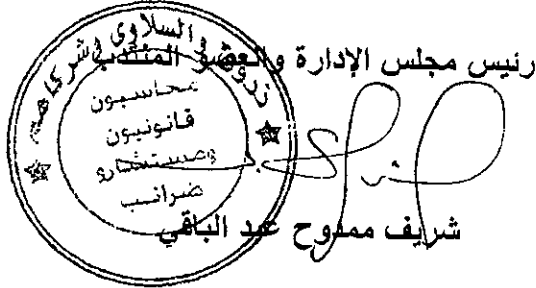 رئيس مجلس الإدارة والعضو المنتدب
والسلاوي وشركاهم
محاسبون
قانونيون
ومستشارو
ضرائب
شريف ممدوح عبد الباقي